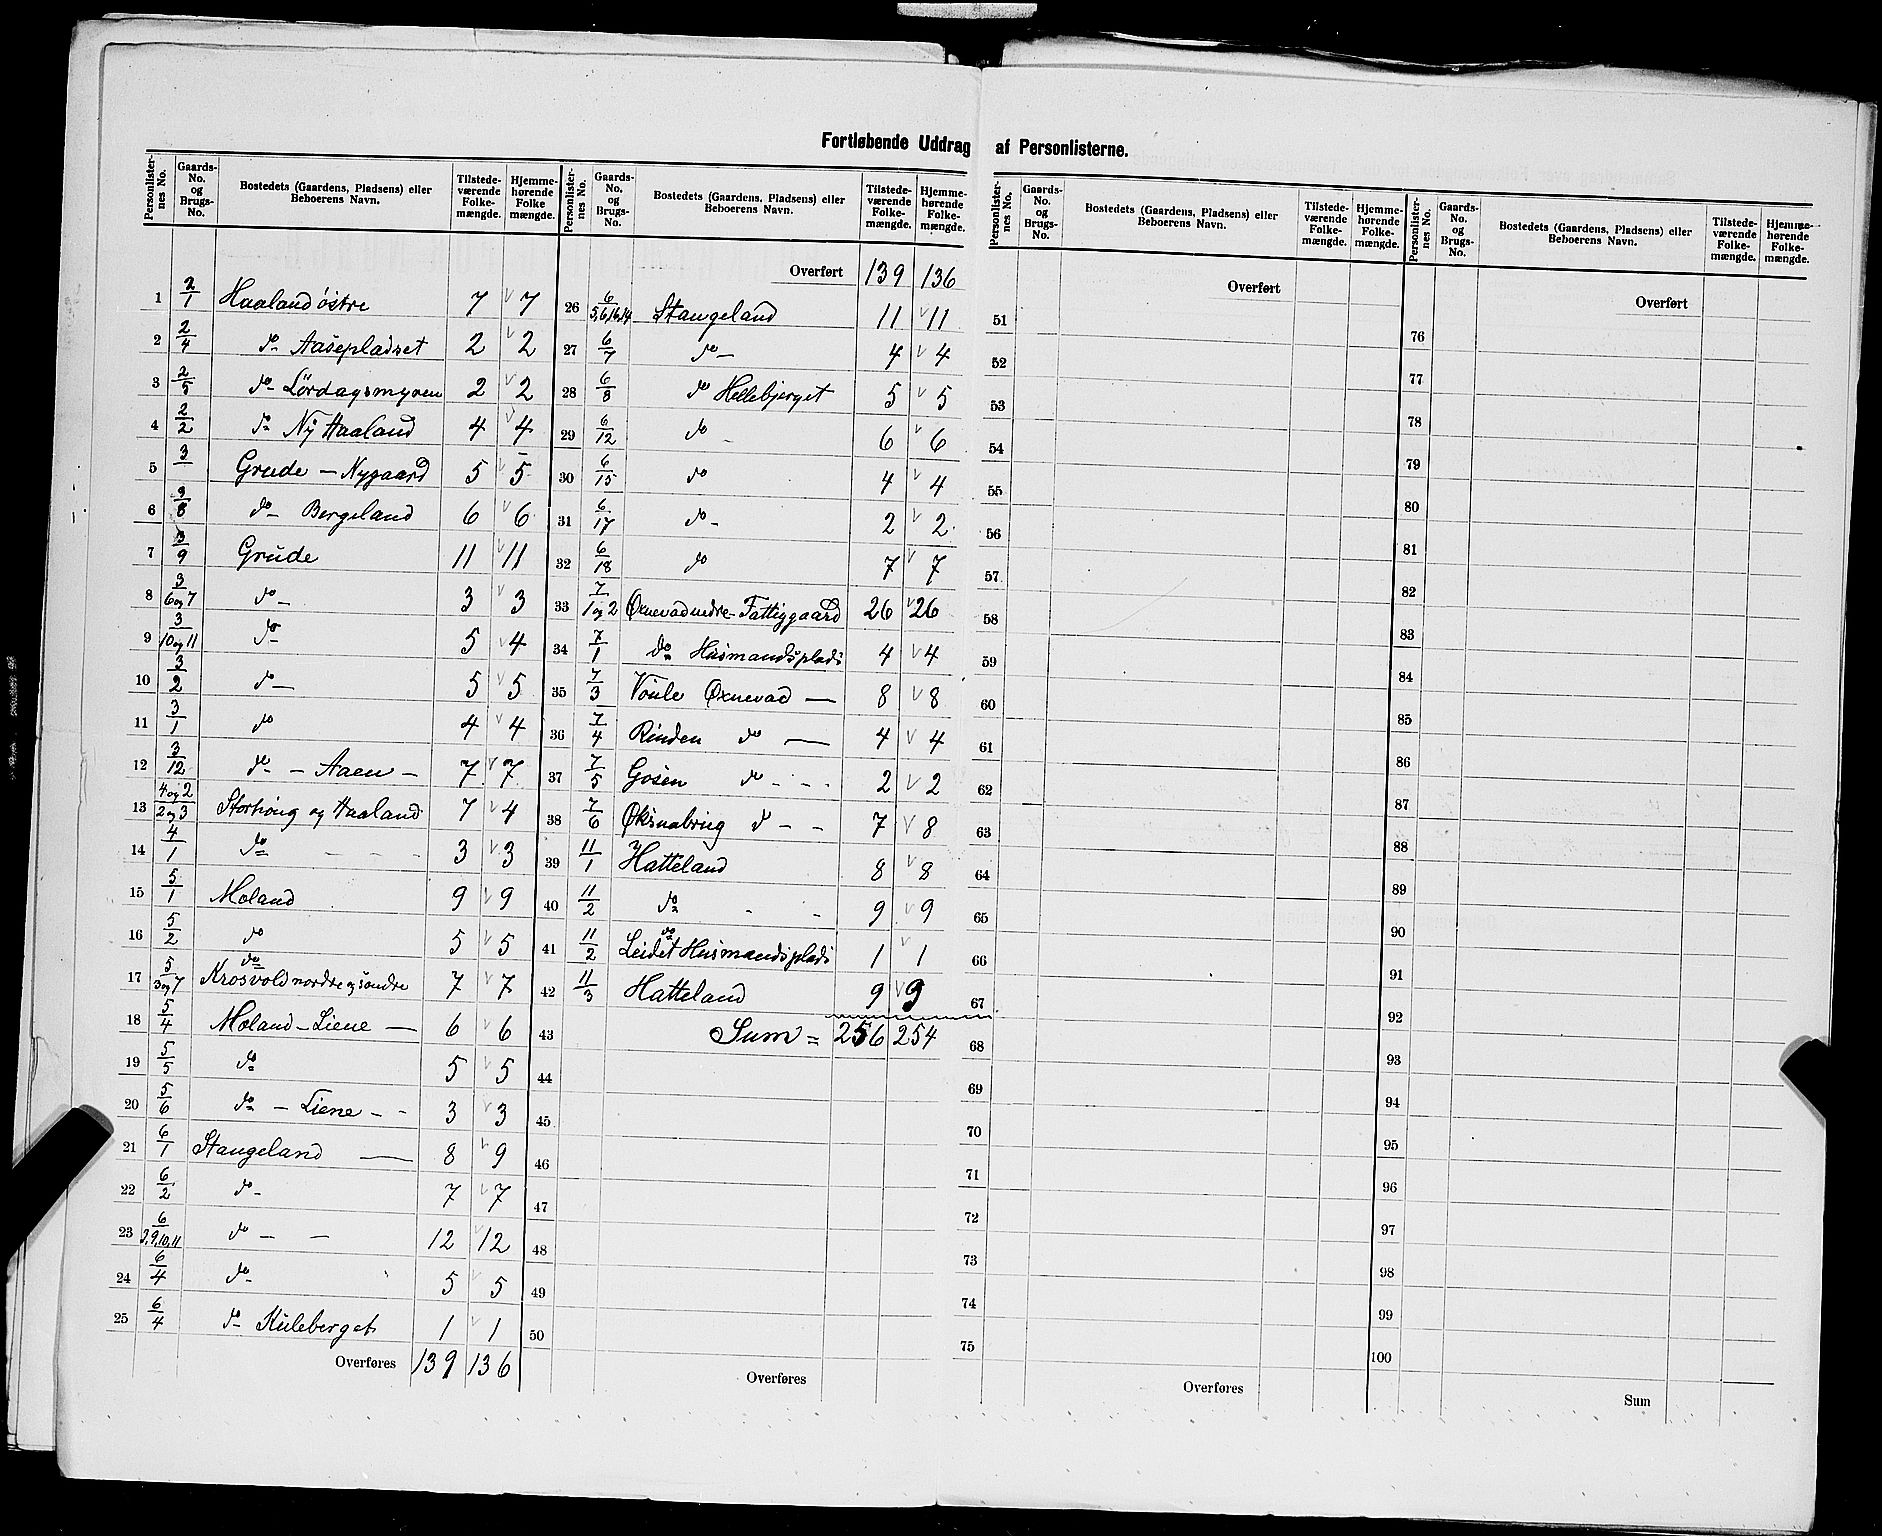 Fortløbende Uddrag af Personlisterne.
Personlister-nes No. Gaards-No. og Brugs-No. Bostedets (Gaardens, Pladsens) eller Beboerens Navn. Tilstede-værende Folke-mængde. Hjemme-hørende Folke mængde.
1 2/1 Haaland östre 7 7
2 2/4 do Aasepladset 2 2
3 2/5 do Lördagsmyren 2 2
4 2/2 do Ny Haaland 4 4
5 3/ Grude - Nygaard 5 5
6 3/8 do Bergeland 6 6
7 3/9 Grude 11 11
8 3/6 og 7 do 3 3
9 3/10 og 11 do 5 4
10 3/2 do 5 5
11 3/1 do 4 4
12 3/12 do - Aaen - 7 7
13 4 og 2/2 og 3 Storhoug og Haaland 7 4
14 4/1 do 3 3
15 5/1 Moland 9 9
16 5/2 do 5 5
17 5/3 og 7 do Krosvold nordre og söndre 7 7
18 5/4 Moland - Liene 6 6
19 5/5 do 5 5
20 5/6 do - Liene - - 3 3
21 6/1 Stangeland 8 9
22 6/2 do 7 7
23 6/3,9,10,11 do - - 12 12
24 6/4 do 5 5
25 6/4 do Kuleberget 1 1
Overføres 139 136
Personlister-nes No. Gaards-No. og Brugs-No. Bostedets (Gaardens, Pladsens) eller Beboerens Navn. Tilstede-værende Folke-mængde. Hjemme-hørende Folke-mængde.
Overført 139 136
26 6/5,6,16,14 Stangeland 11 11
27 6/7 do 4 4
28 6/8 do Hellebjerget 5 5
29 6/12 do 6 6
30 6/15 do 4 4
31 6/17 do 2 2
32 6/18 do 7 7
33 7/1 og 2 Øxnevad nedre - Fattiggaard 26 26
34 7/1 do Husmandsplads 4 4
35 7/3 Voule Øxnevad 8 8
36 7/4 Rinden do 4 4
37 7/5 Gosen do 2 2
38 7/6 Øksnabrug do - - 7 8
39 11/1 Hatteland 8 8
40 11/2 do 9 9
41 11/2 do Leidet Husmandsplads 1 1
42 11/3 Hatteland 9 9
43 Sum = 256 254
44
45
46
47
48
49
50
Overføres
Personlister-nes No. Gaards-No. og Brugs-No. Bostedets (Gaardens, Pladsens) eller Beboerens Navn. Tilstede-værende Folke-mængde. Hjemme-hørende Folke-mængde.
Overført
51
52
53
54
55
56
57
58
59
60
61
62
63
64
65
66
67
68
69
70
71
72
73
74
75
Overføres
Personlister-nes No. Gaards-No. og Brugs-No. Bostedets (Gaardens, Pladsens) eller Beboerens Navn. Tilstede-værende Folke-mængde. Hjemme-hørende Folke-mængde.
Overført
76
77
78
79
80
81
82
83
84
85
86
87
88
89
90
91
92
93
94
95
96
97
98
99
100
Sum